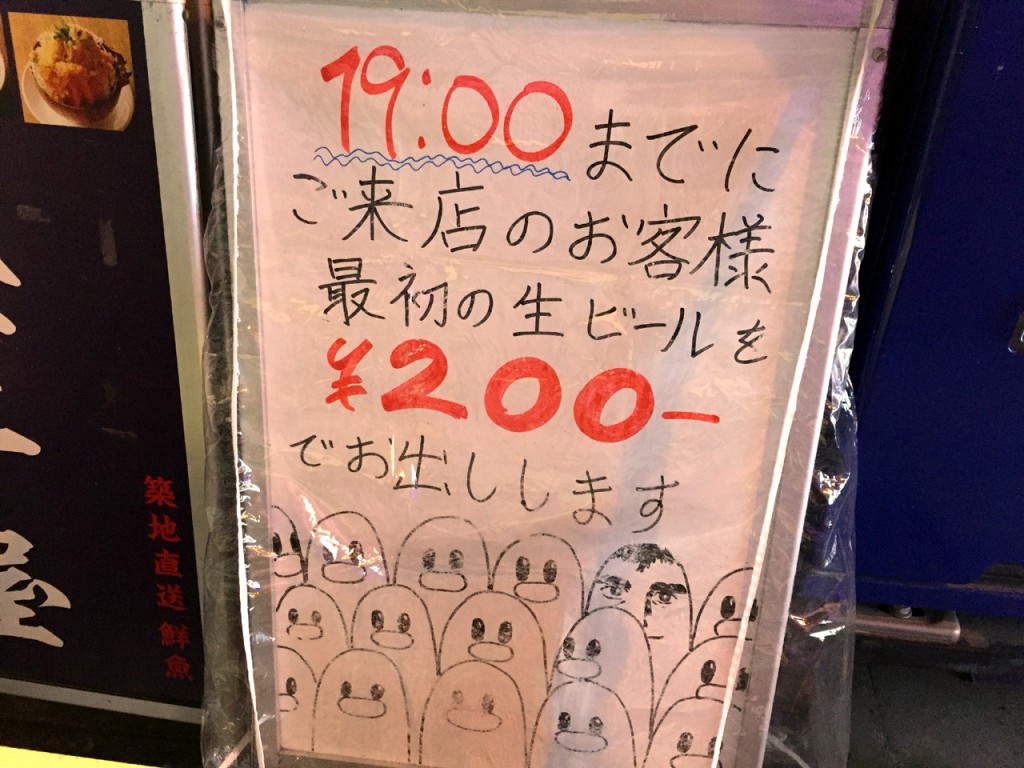 19:00までに
ご来店のお客様
最初の生ビールを
¥200-
でお出しします
築地直送鮮魚
屋